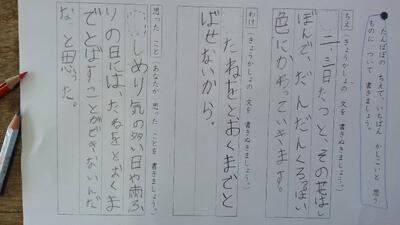 たんぽぽの ちえで、いちばん かしこいと 思う
ものに ついて 書きましょう。
ちえ(きょうかしょの 文を 書きぬきましょう。)
二、三日たつと、その花はし
ぼんで、だんだんくろっぽい
色にかわっていきます。
わけ(きょうかしょの 文を 書きぬきましょう。)
たねをとおくまでと
ばせないから。
思った こと(あなたが 思った ことを 書きましょう。)
しめり気の多い日や雨ふ
りの日には、たねをとおくま
でとばすことができないんだ
な と思った。